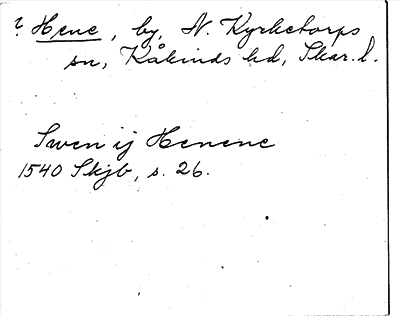 ? Hene, by, N. Kyrketorps
sn, Kåkinds hd, Skar. l.
Swen ij Henene
1540 Skjb, s. 26.